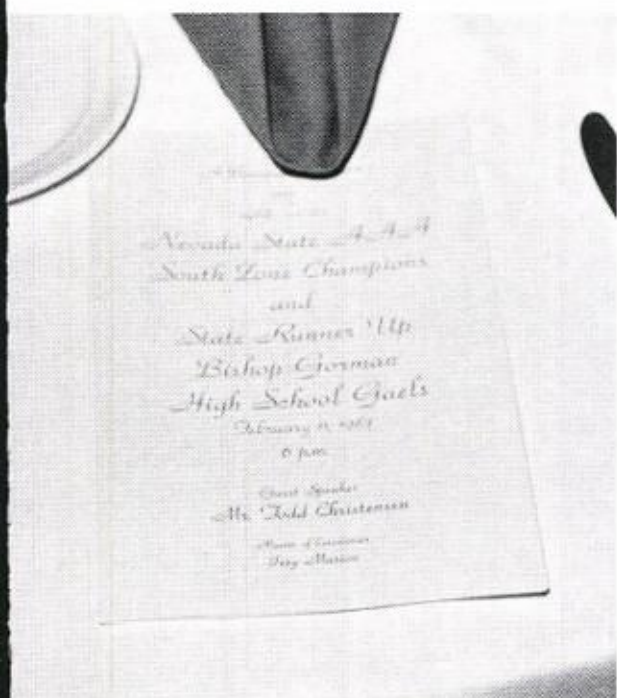 Nevada State AAA
South Zone Champions
and
State Runner Up
Bishop Gorman
High School Gaels
February
6 p.m.
Guest Speaker
Mr. Todd Christensen
Master of Ceremonies